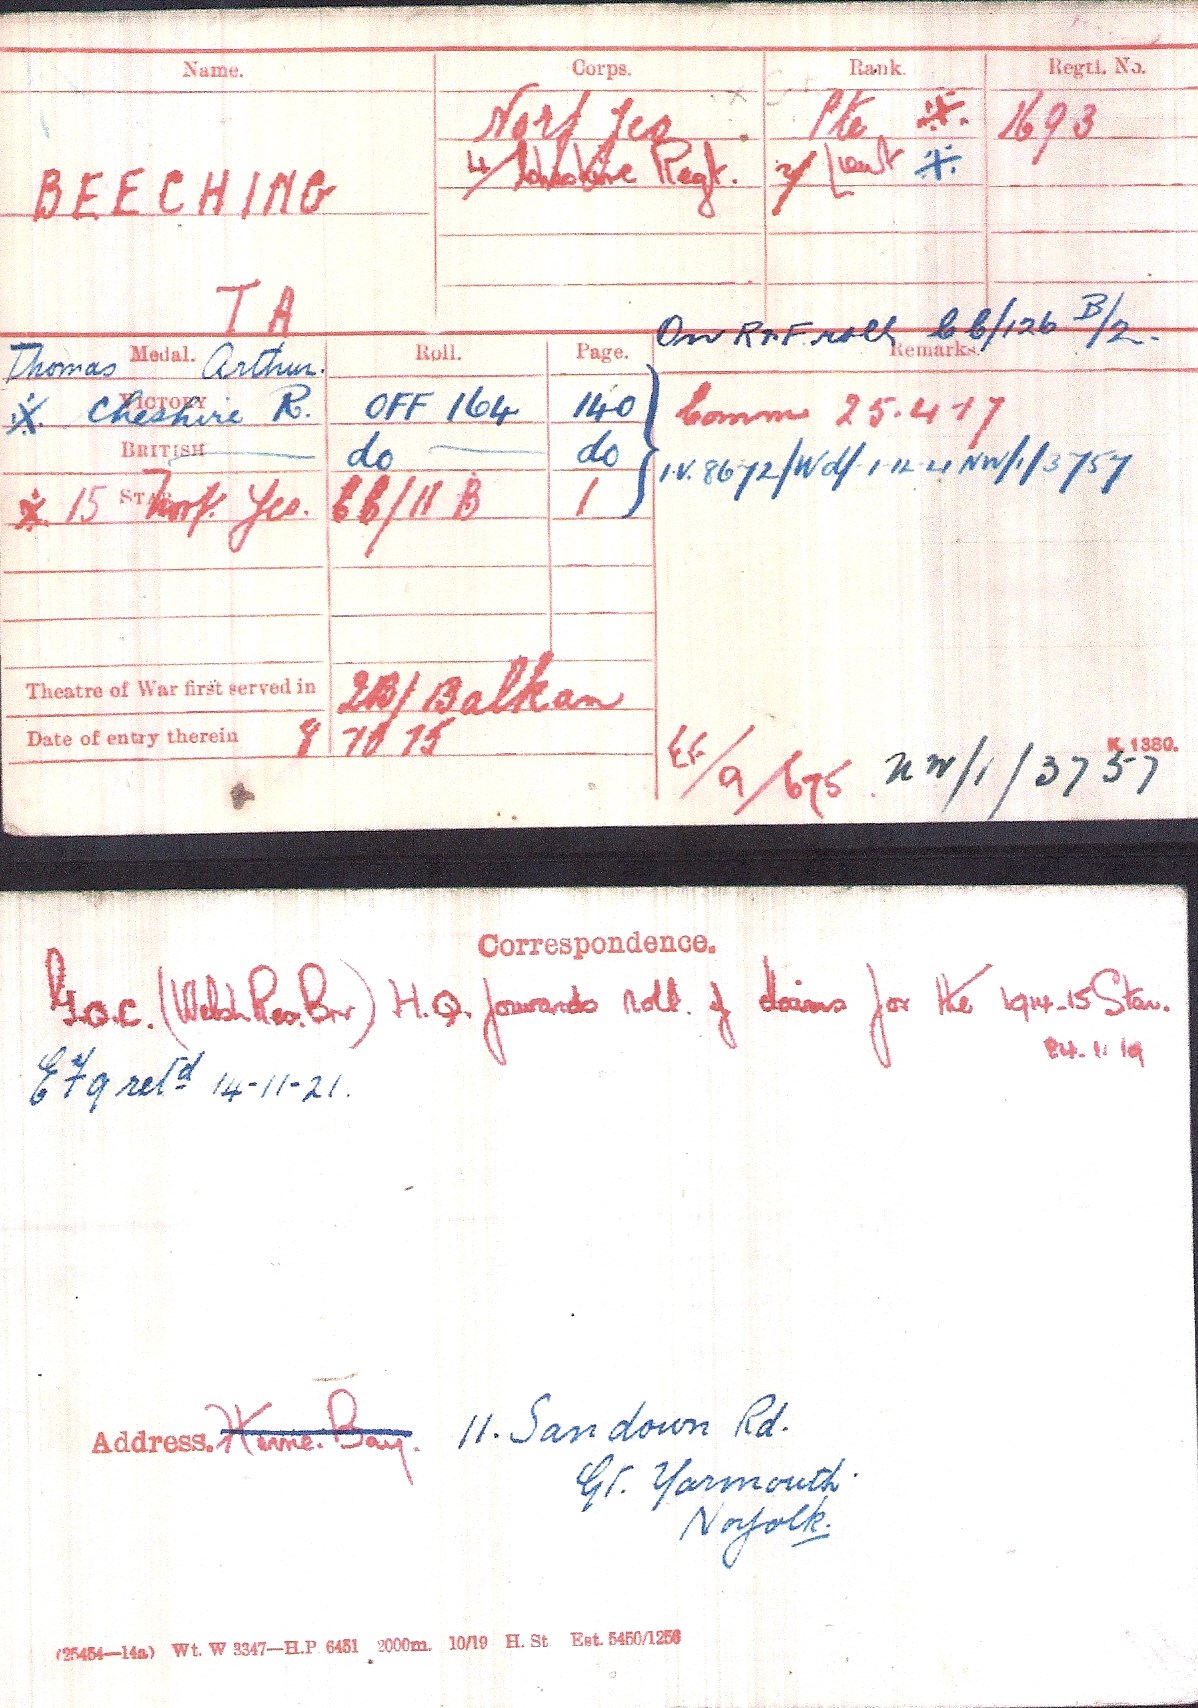 Name. Corps. Rank. Regtl. No.
Norf Yeo Pte 1693
4/Cheshire Regt. 2/Lieut
BEECHING
T A
On R&F roll CC/126 B/2.
Medal. Roll. Page. Remarks.
Thomas Arthur.
VICTORY Cheshire R. OFF 164 140 Comm 25.4.17
BRITISH do do I.V. 8672/Wd/1-12-21 NW/1/3757
15 STAR Norf. Yeo. CC/11 B 1
Theatre of War first served in 2B/Balkan
Date of entry therein 8 10 15
K. 1380.
EF/9/675 NW/1/3757
Correspondence.
G.O.C. (Welsh Res. Bn) H.Q. forwards roll of claims for the 1914-15 Star.
24.11.19
EF9 retd 14-11-21.
Address. Herne Bay. 11. Sandown Rd.
Gt. Yarmouth
Norfolk.
(25454—14a) Wt. W 3347—H.P. 6451 2000m. 10/19 H. St Est. 5450/1256